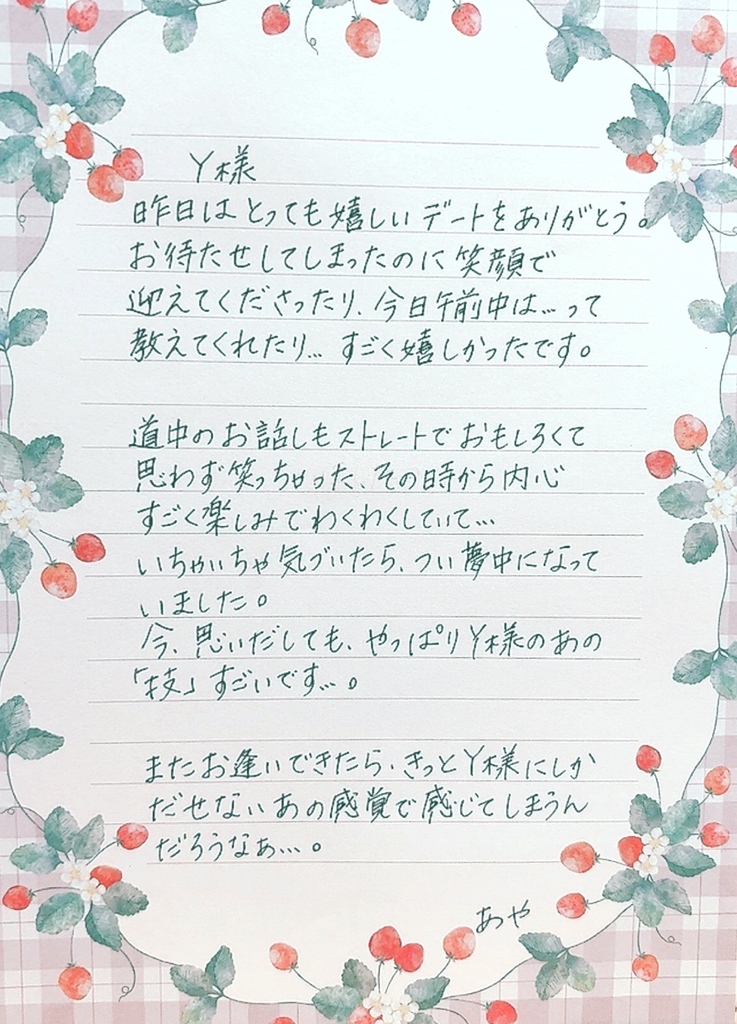 Y様
昨日はとっても嬉しいデートをありがとう。
お待たせしてしまったのに笑顔で
迎えてくださったり、今日午前中は…って
教えてくれたり… すごく嬉しかったです。
道中のお話しもストレートでおもしろくて
思わず笑っちゃった、その時から内心
すごく楽しみでわくわくしていて…
いちゃいちゃ気づいたら、つい夢中になって
いました。
今、思いだしても、やっぱりY様のあの
「技」すごいです…。
またお逢いできたら、きっとY様にしか
だせないあの感覚で感じてしまうん
だろうなぁ…。
あや